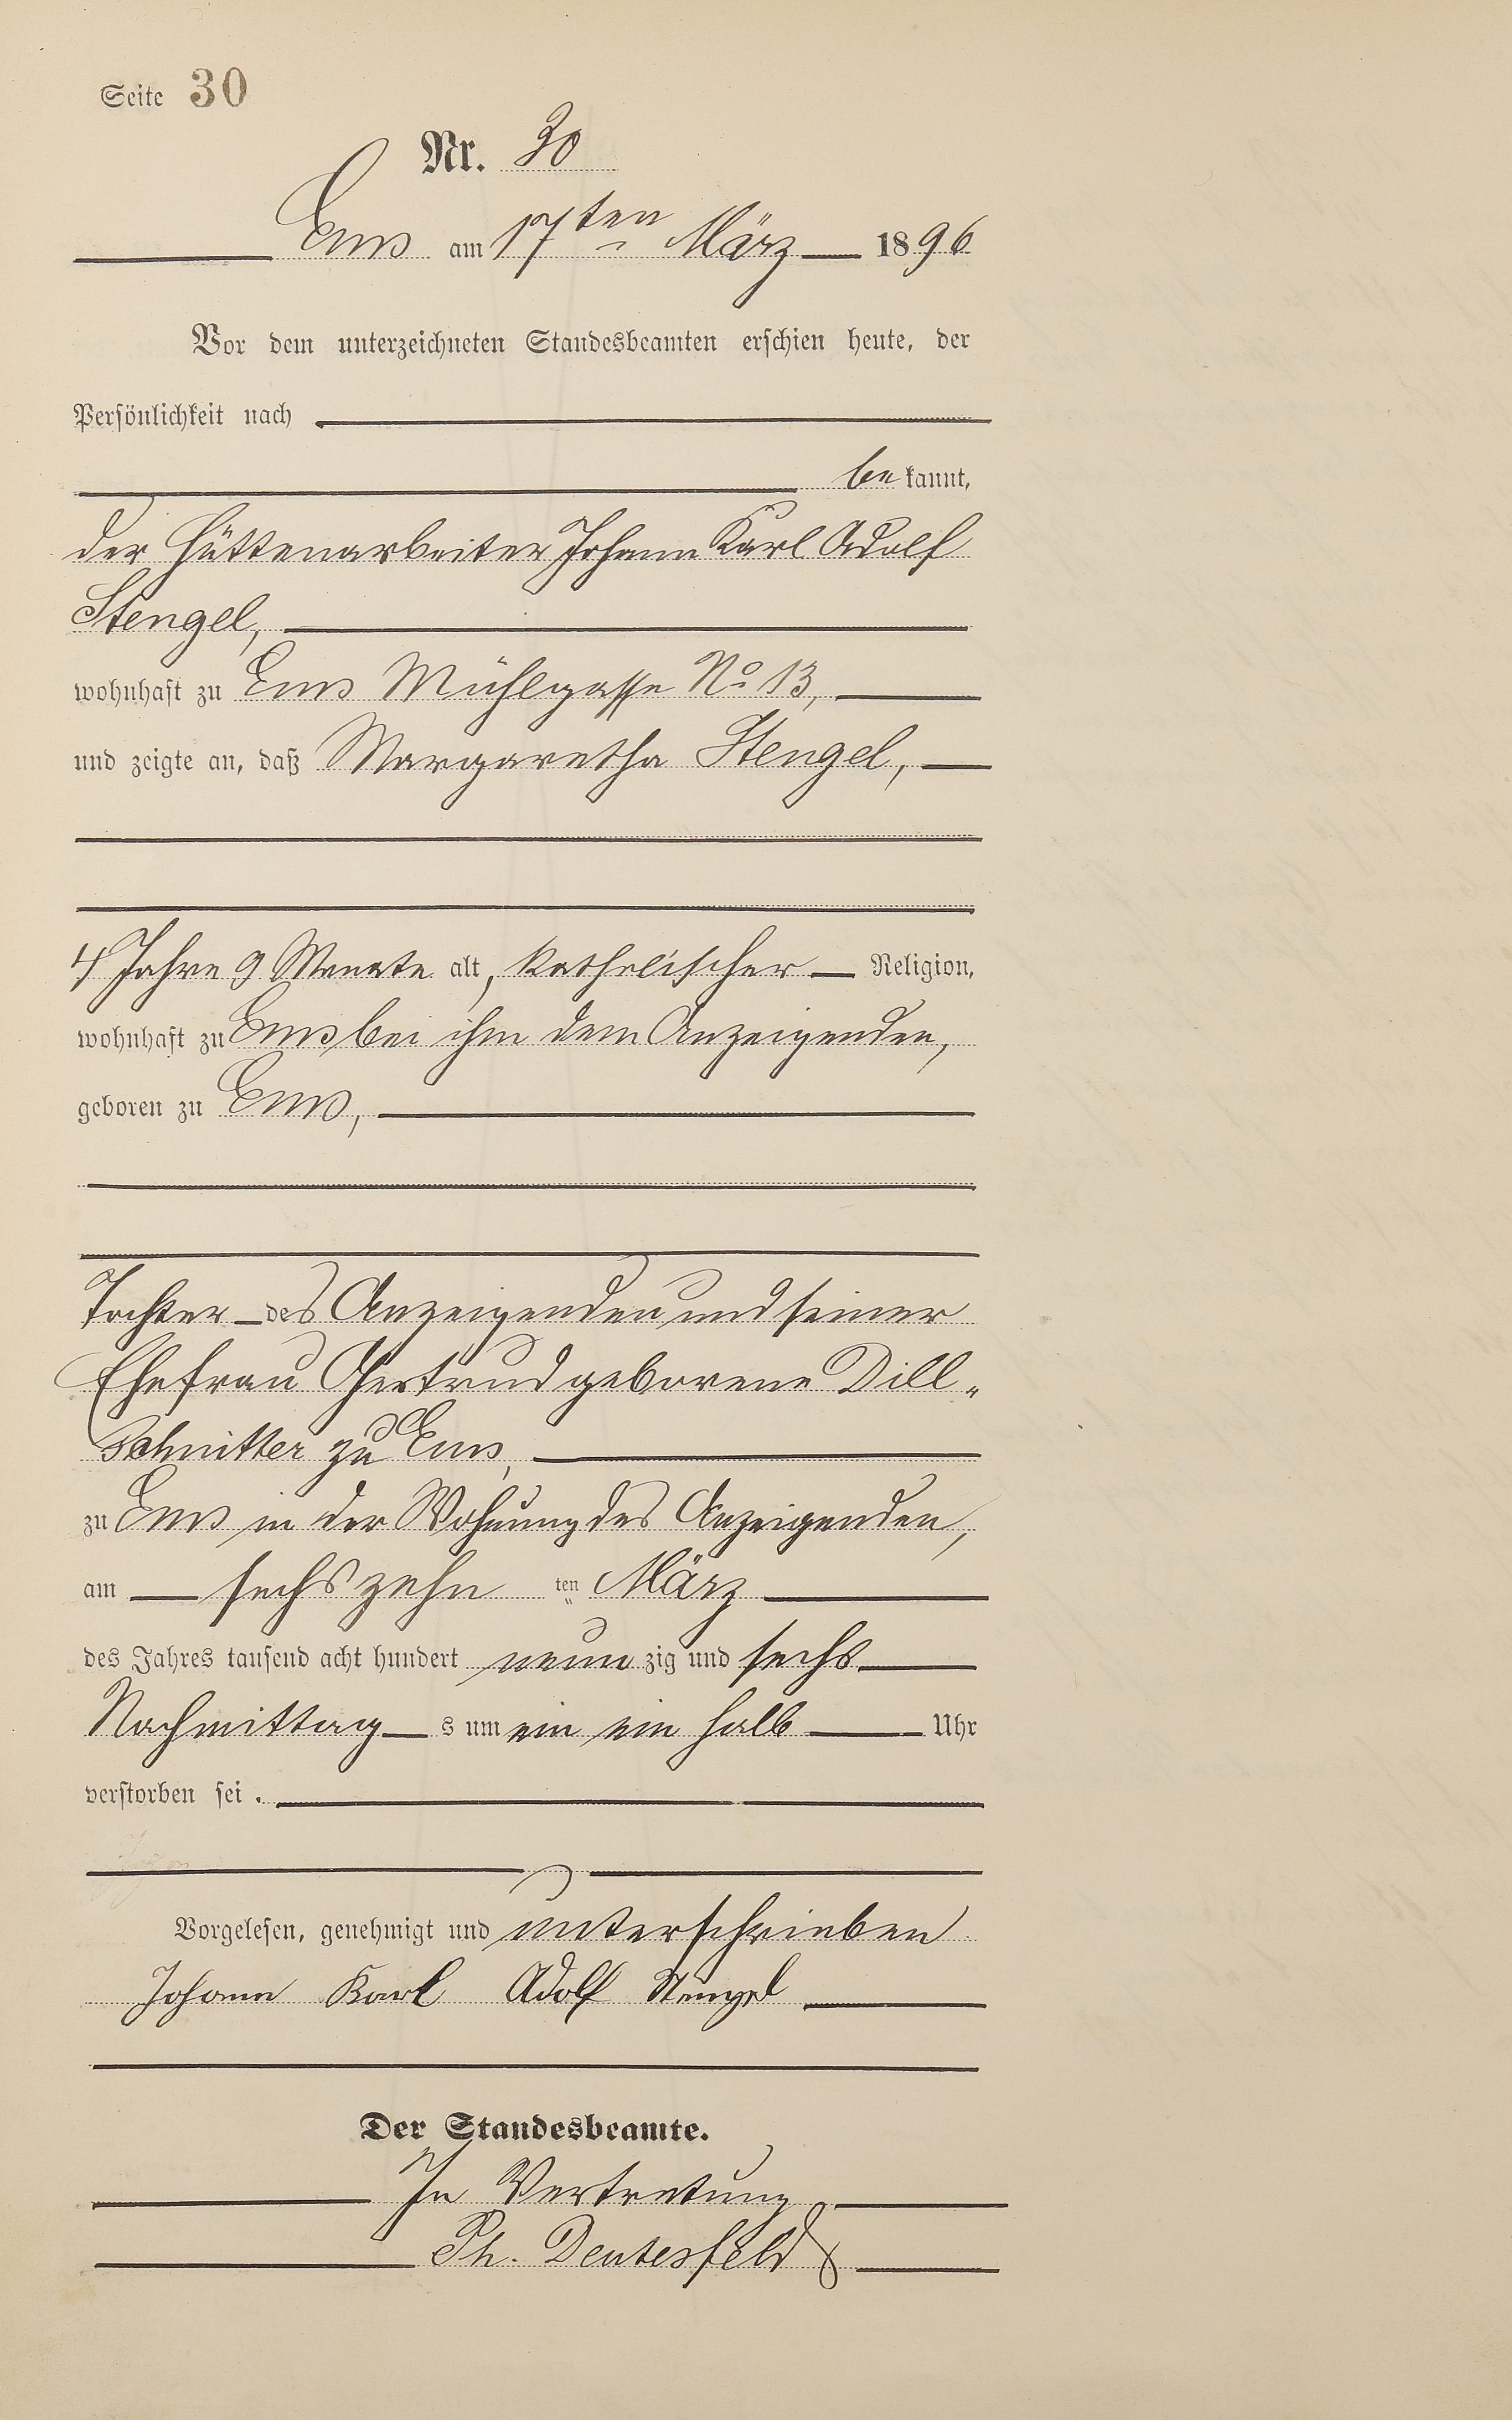 Seite 30
Nr. 30
Ems am 17ten März 1896
Vor dem unterzeichneten Standesbeamten erschien heute, der
Persönlichkeit nach
bekannt,
der Hüttenarbeiter Johann Karl Adolf
Stengel,
wohnhaft zu Ems Mühlgasse No 13,
und zeigte an, daß Margaretha Stengel,
4 Jahre 9 Monate alt, katholischer Religion,
wohnhaft zu Ems bei ihm dem Anzeigenden,
geboren zu Ems,
Tochter des Anzeigenden und seiner
Ehefrau Gertrud geborene Dill-
schnitter zu Ems,
zu Ems in der Wohnung des Anzeigenden,
am sechszehn ten März
des Jahres tausend acht hundert neunzig und sechs
Nachmittags um ein ein halb Uhr
verstorben sei.
Vorgelesen, genehmigt und unterschrieben
Johann Karl Adolf Stengel
Der Standesbeamte.
In Vertretung
Ph. Deutesfeld